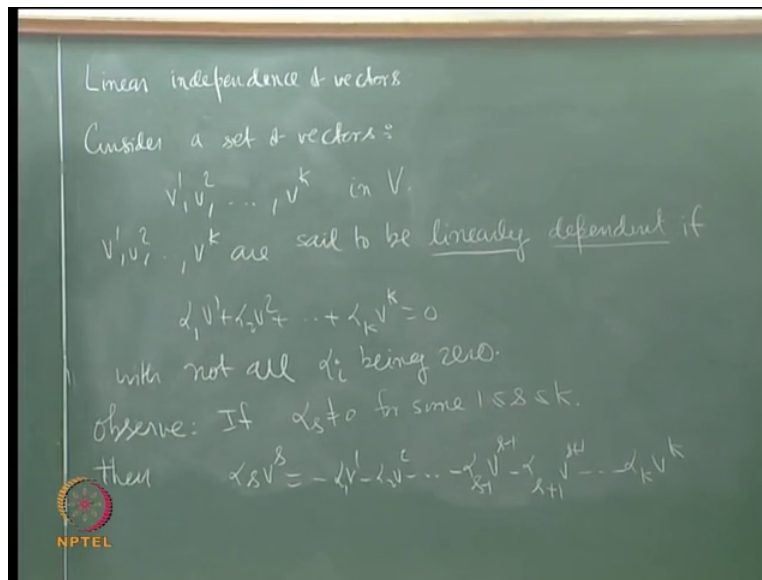 Linear independence of vectors
Consider a set of vectors:
v¹, v², ..., vᵏ in V.
v¹, v², .., vᵏ are sail to be linearly dependent if
α₁v¹+α₂v²+ ... +αₖvᵏ=0
with not all αᵢ being zero.
observe: If αₛ≠0 for some 1≤s≤k.
then αₛvˢ = -α₁v¹-α₂v²- ... -αₛ₋₁vˢ⁻¹-αₛ₊₁vˢ⁺¹ ... -αₖvᵏ
NPTEL